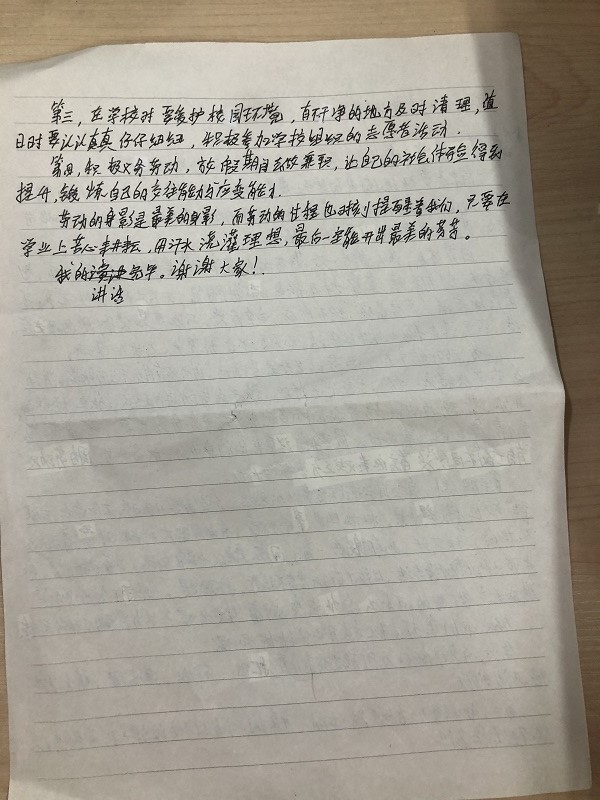 第三，在学校时要爱护校园环境，有不干净的地方及时清理，值
日时要认认真真仔仔细细，积极参加学校组织的志愿者活动．
第四，积极义务劳动，放假期间去做兼职，让自己的社会体验得到
提升，锻炼自己的交往能力与应变能力．
劳动的身影是最美的身影，而劳动的过程也时刻提醒着我们，只要在
学业上苦心耕耘，用汗水浇灌理想，最后一定能开出最美的芳华。
我的演讲完毕。谢谢大家！
讲话